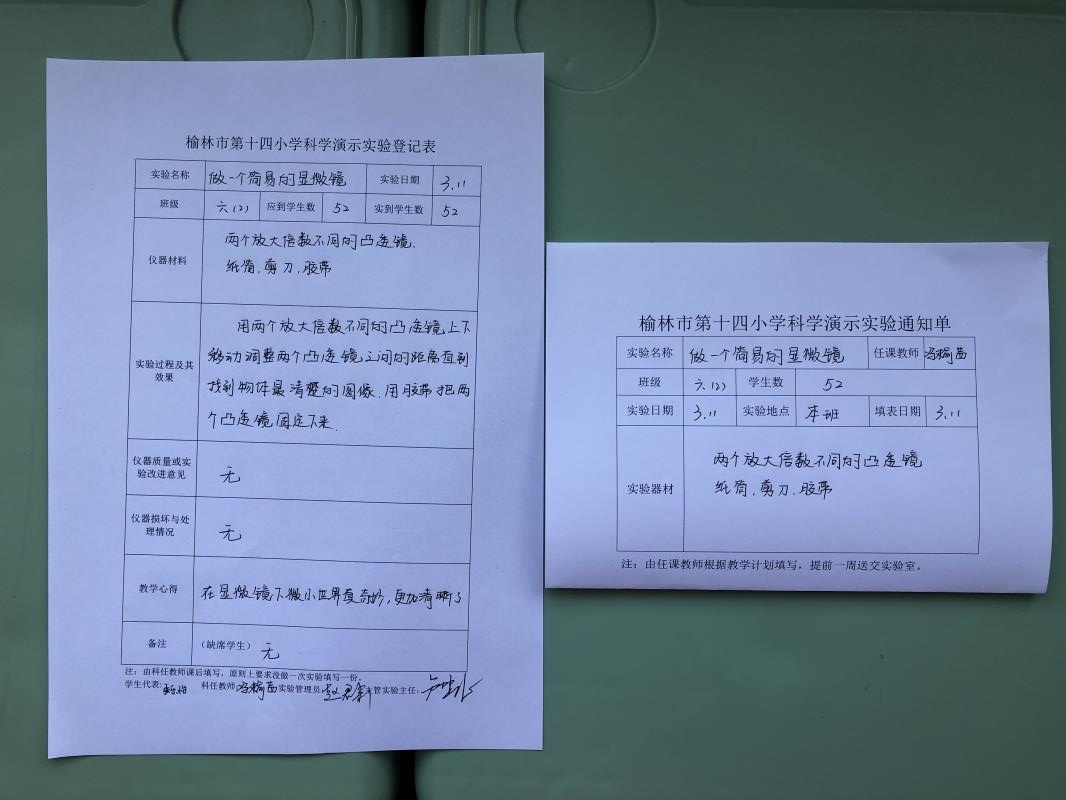 榆林市第十四小学科学演示实验登记表
实验名称 做一个简易的显微镜 实验日期 3.11
班级 六(2) 应到学生数 52 实到学生数 52
仪器材料
两个放大倍数不同的凸透镜.
纸筒,剪刀.胶带
实验过程及其
效果
用两个放大倍数不同的凸透镜上下
移动调整两个凸透镜之间的距离直到
找到物体最清楚的图像,用胶带把两
个凸透镜固定下来.
仪器质量或实
验改进意见
无
仪器损坏与处
理情况
无
教学心得 在显微镜下微小世界更奇妙,更加清晰了
备注 (缺席学生) 无
注:由科任教师课后填写,原则上要求没做一次实验填写一份。
学生代表: 科任教师:冯榆茜 实验管理员: 主管实验主任:
榆林市第十四小学科学演示实验通知单
实验名称 做一个简易的显微镜 任课教师 冯榆茜
班级 六(2) 学生数 52
实验日期 3.11 实验地点 本班 填表日期 3.11
实验器材
两个放大倍数不同的凸透镜
纸筒,剪刀.胶带
注:由任课教师根据教学计划填写,提前一周送交实验室。